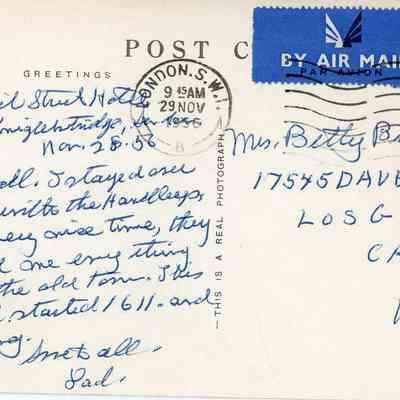 POST C
GREETINGS
BY AIR MAI
PAR AVION
LONDON. S.W.1.
9 15 AM
29 NOV
1956
B
Knightsbridge,
Nov. 28-56
I stayed over
with the Handleeps
very nice time, they
me every thing
the old town. This
started 1611- and
all.
Dad.
THIS IS A REAL PHOTOGRAPH
Mrs. Betty B
17545 DAVE
LOS G
CA